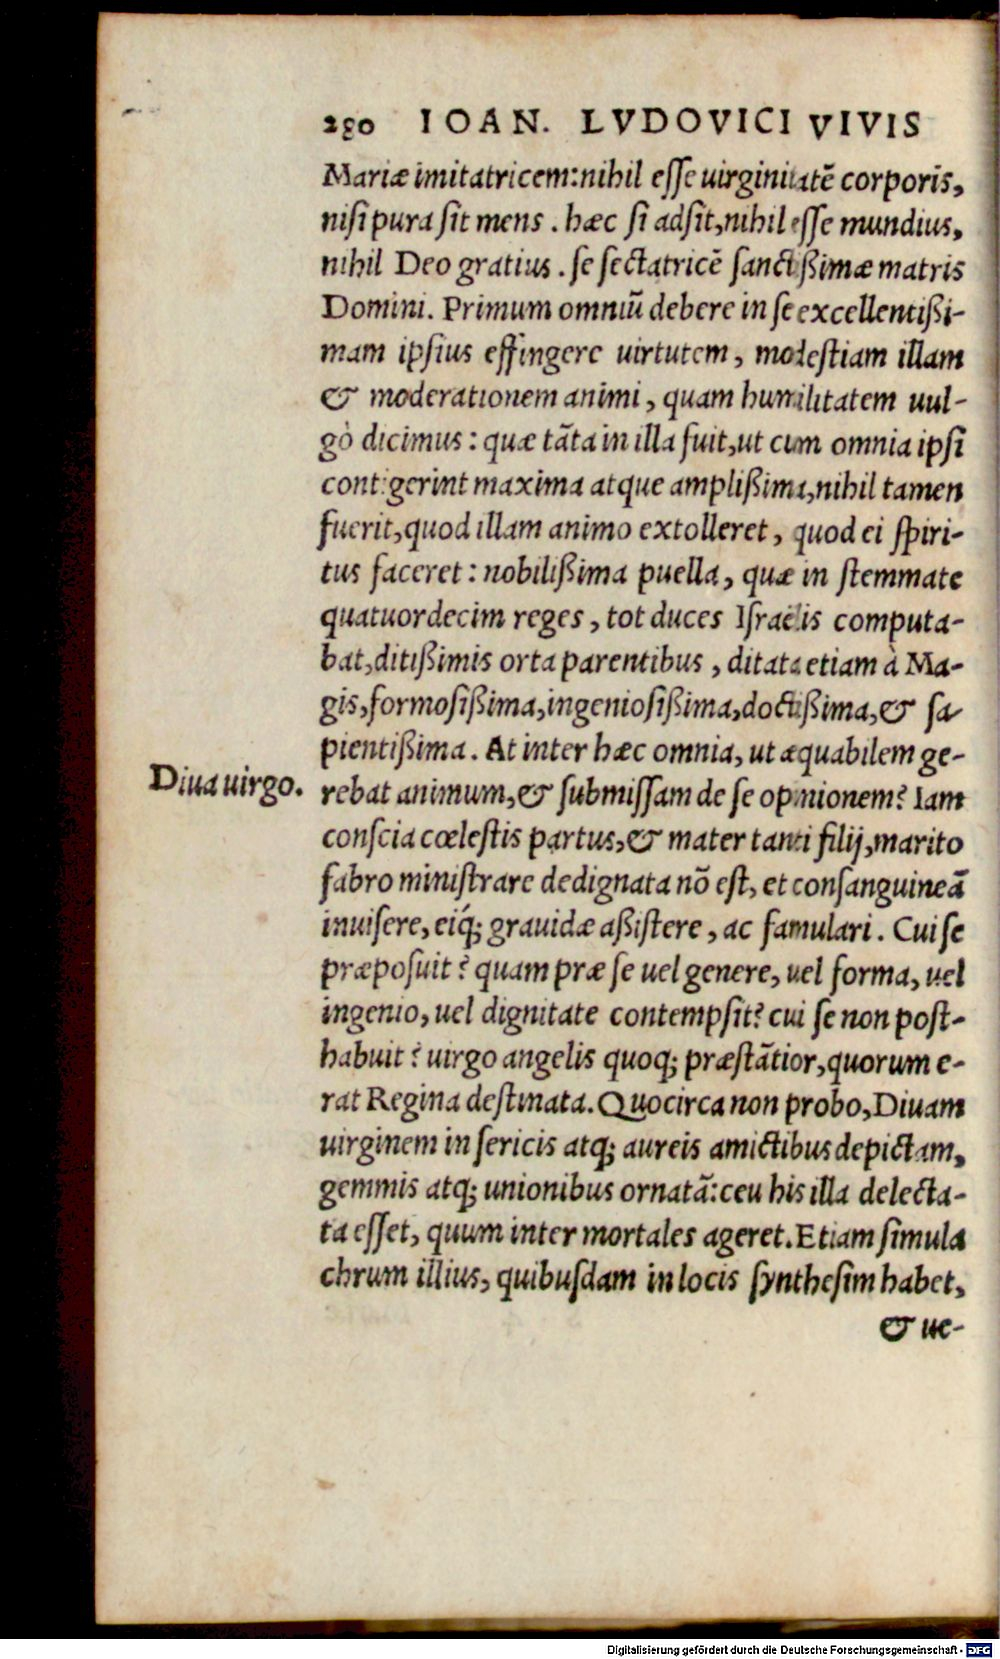 280 IOAN. LVDOVICI VIVIS
Mariæ imitatricem: nihil esse uirginitatē corporis,
nisi pura sit mens. hæc si adsit, nihil esse mundius,
nihil Deo gratius. se sectatricē sanctißimæ matris
Domini. Primum omniū debere in se excellentißi-
mam ipsius effingere uirtutem, modestiam illam
& moderationem animi, quam humilitatem uul-
gò dicimus: quæ tāta in illa fuit, ut cum omnia ipsi
contigerint maxima atque amplißima, nihil tamen
fuerit, quod illam animo extolleret, quod ei spiri-
tus faceret: nobilißima puella, quæ in stemmate
quatuordecim reges, tot duces Israëlis computa-
bat, ditißimis orta parentibus, ditata etiam à Ma-
gis, formosißima, ingeniosißima, doctißima, & sa-
pientißima. At inter hæc omnia, ut æquabilem ge-
Diua uirgo.
rebat animum, & submissam de se opinionem? Iam
conscia cœlestis partus, & mater tanti filij, marito
fabro ministrare dedignata nō est, et consanguineā
inuisere, eiq́; grauidæ aßistere, ac famulari. Cui se
præposuit? quam præ se uel genere, uel forma, uel
ingenio, uel dignitate contempsit? cui se non post-
habuit? uirgo angelis quoq; præstātior, quorum e-
rat Regina destinata. Quocirca non probo, Diuam
uirginem in sericis atq; aureis amictibus depictam,
gemmis atq; unionibus ornatā: ceu his illa delecta-
ta esset, quum inter mortales ageret. Etiam simula
chrum illius, quibusdam in locis synthesim habet,
& ue-
Digitalisierung gefördert durch die Deutsche Forschungsgemeinschaft - DFG